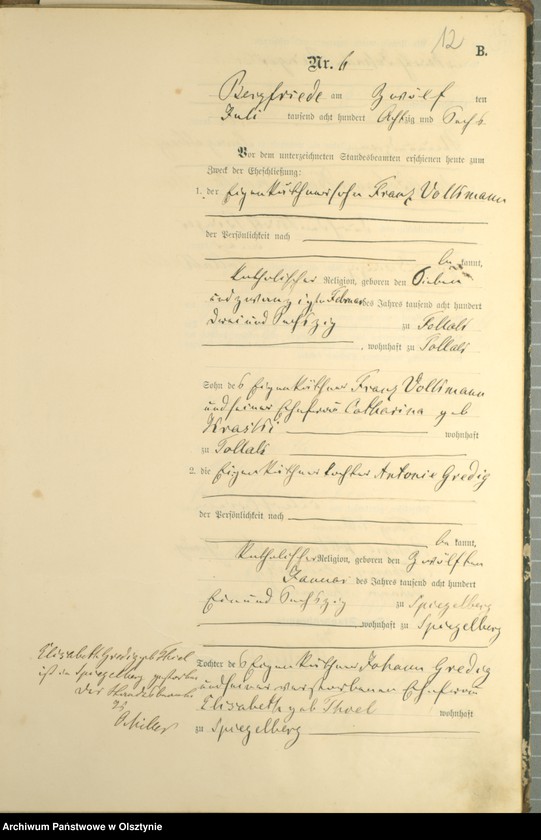 12
B.
Nr. 6
Bergfriede am Zwölften
Juli tausend acht hundert Achtzig und Sechs
Vor dem unterzeichneten Standesbeamten erschienen heute zum
Zweck der Eheschließung:
1. der Eigenkäthnersohn Franz Volksmann
der Persönlichkeit nach
bekannt,
katholischer Religion, geboren den Sieben
und zwanzigsten Februar des Jahres tausend acht hundert
Drei und Sechszig zu
, wohnhaft zu
Sohn des Eigenkäthner Franz Volksmann
und seiner Ehefrau Catharina geb
wohnhaft
zu
2. die Eigenkäthnertochter Antonie Gredig
der Persönlichkeit nach
bekannt,
katholischer Religion, geboren den Zwölften
Januar des Jahres tausend acht hundert
Ein und Sechszig zu Spiegelberg
, wohnhaft zu Spiegelberg
Tochter des Eigenkäthner Johann Gredig
und seiner verstorbenen Ehefrau
Elisabeth geb Thiel wohnhaft
zu Spiegelberg
Elisabeth Gredig geb Thiel
ist in Spiegelberg gestorben
Der Standesbeamte
Archiwum Państwowe w Olsztynie